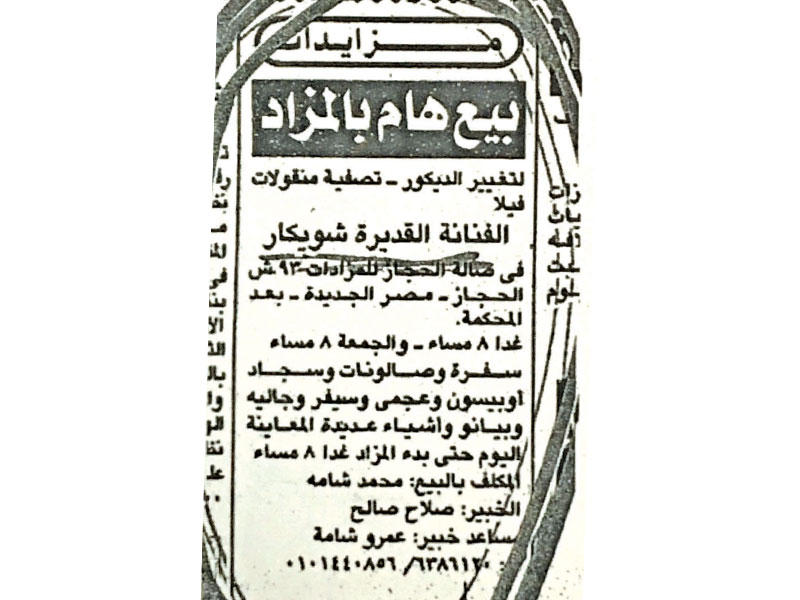 مزايدات
بيع هام بالمزاد
لتغيير الديكور - تصفية منقولات
فيلا
الفنانة القديرة شويكار
فى صالة الحجاز للمزادات ٩٣ ش
الحجاز - مصر الجديدة - بعد
المحكمة.
غدا ٨ مساء - والجمعة ٨ مساء
سفرة وصالونات وسجاد
أوبيسون وعجمى وسيفر وجاليه
وبيانو وأشياء عديدة المعاينة
اليوم حتى بدء المزاد غدا ٨ مساء
المكلف بالبيع: محمد شامه
الخبير: صلاح صالح
مساعد خبير: عمرو شامة
: ٦٣٨٦١٢٠/ ٠١٠١٤٤٠٨٥٦